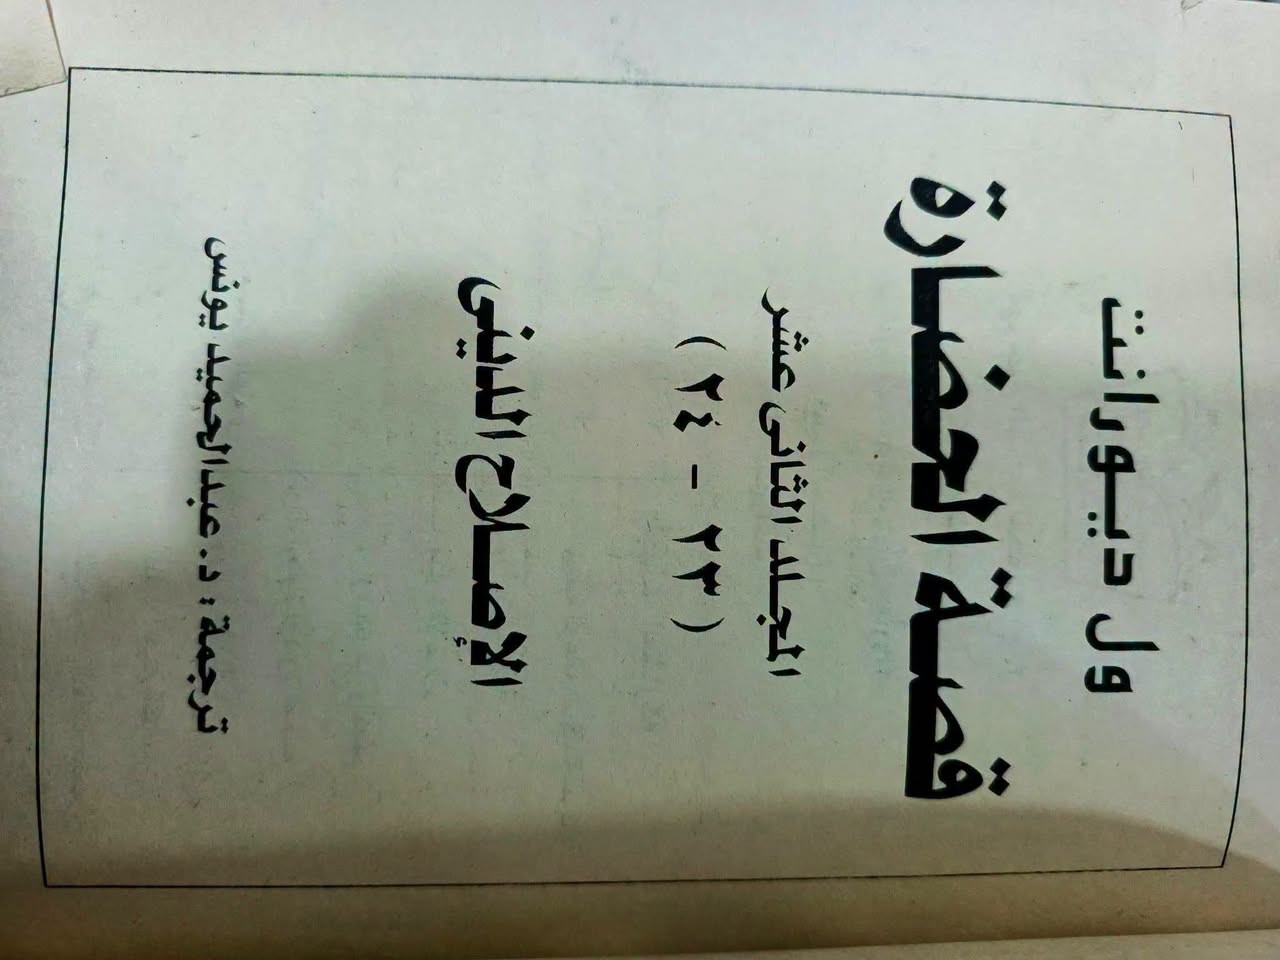 ول ديورانت
قصة الحضارة
المجلد الثانى عشر
( ٢٣ - ٢٤ )
الإصلاح الدينى
ترجمة : د. عبدالحميد يونس